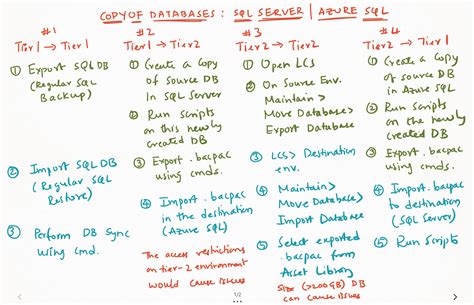 COPY OF DATABASES : SQL SERVER | AZURE SQL
#1
Tier1 → Tier1
① Export SQL DB
(Regular SQL
Backup)
② Import SQL DB
(Regular SQL
Restore)
③ Perform DB Sync
using cmd.
#2
Tier1 → Tier2
① Create a Copy
of Source DB
In SQL Server
② Run Scripts
on this newly
created DB
③ Export .bacpac
using cmds.
④ Import .bacpac
in the destination
(Azure SQL)
The access restrictions
on tier-2 environment
would cause issues
#3
Tier2 → Tier2
① Open LCS
② On Source Env.
Maintain >
Move Database >
Export Database
③ LCS > Destination
env.
④ Maintain >
Move Database >
Import Database
⑤ Select exported
.bacpac from
Asset Library
Size (>200GB) DB
can cause issues
#4
Tier2 → Tier1
① Create a Copy
of source DB
in Azure SQL
② Run Scripts
on the newly
created DB
③ Export .bacpac
using cmds.
④ Import .bacpac
to destination
(SQL Server)
⑤ Run Scripts
1/2